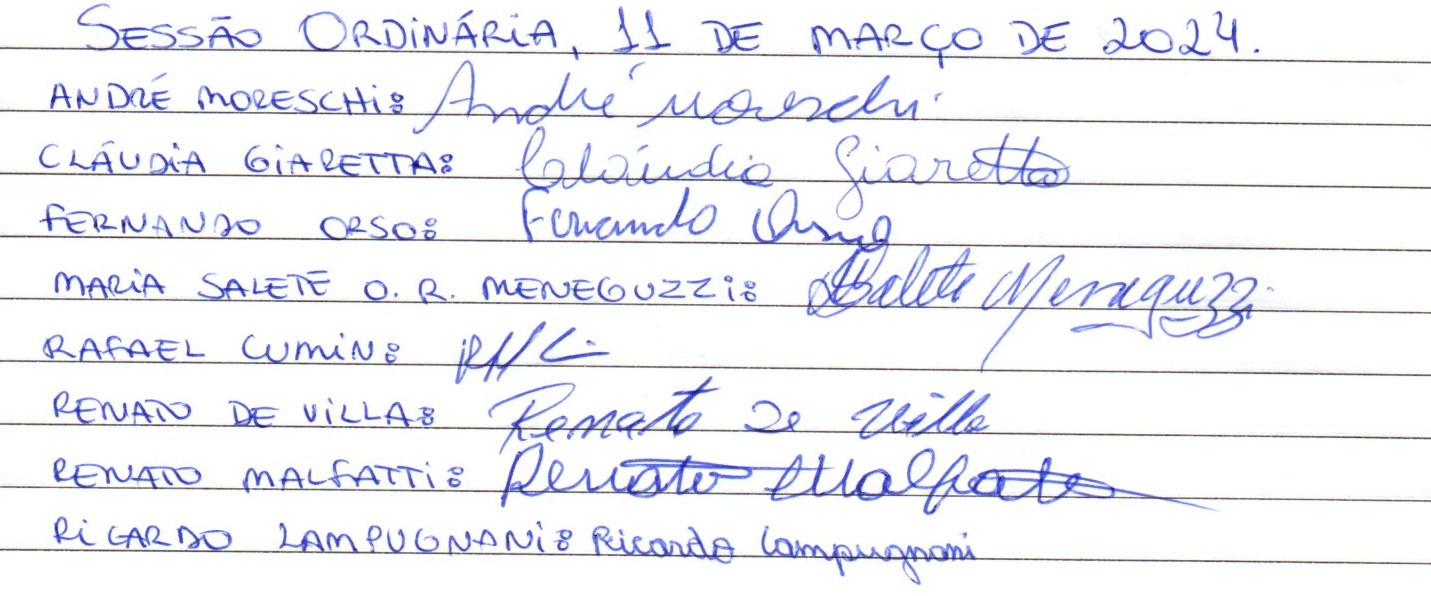 SESSÃO ORDINÁRIA, 11 DE MARÇO DE 2024.
ANDRÉ MORESCHI: André Moreschi
CLÁUDIA GIARETTA: Cláudia Giaretta
FERNANDO ORSO: Fernando Orso
MARIA SALETE O. R. MENEGUZZI: Salete Meneguzzi
RAFAEL CUMIN:
RENATO DE VILLA: Renato De Villa
RENATO MALFATTI: Renato Malfatti
RICARDO LAMPUGNANI: Ricardo Lampugnani